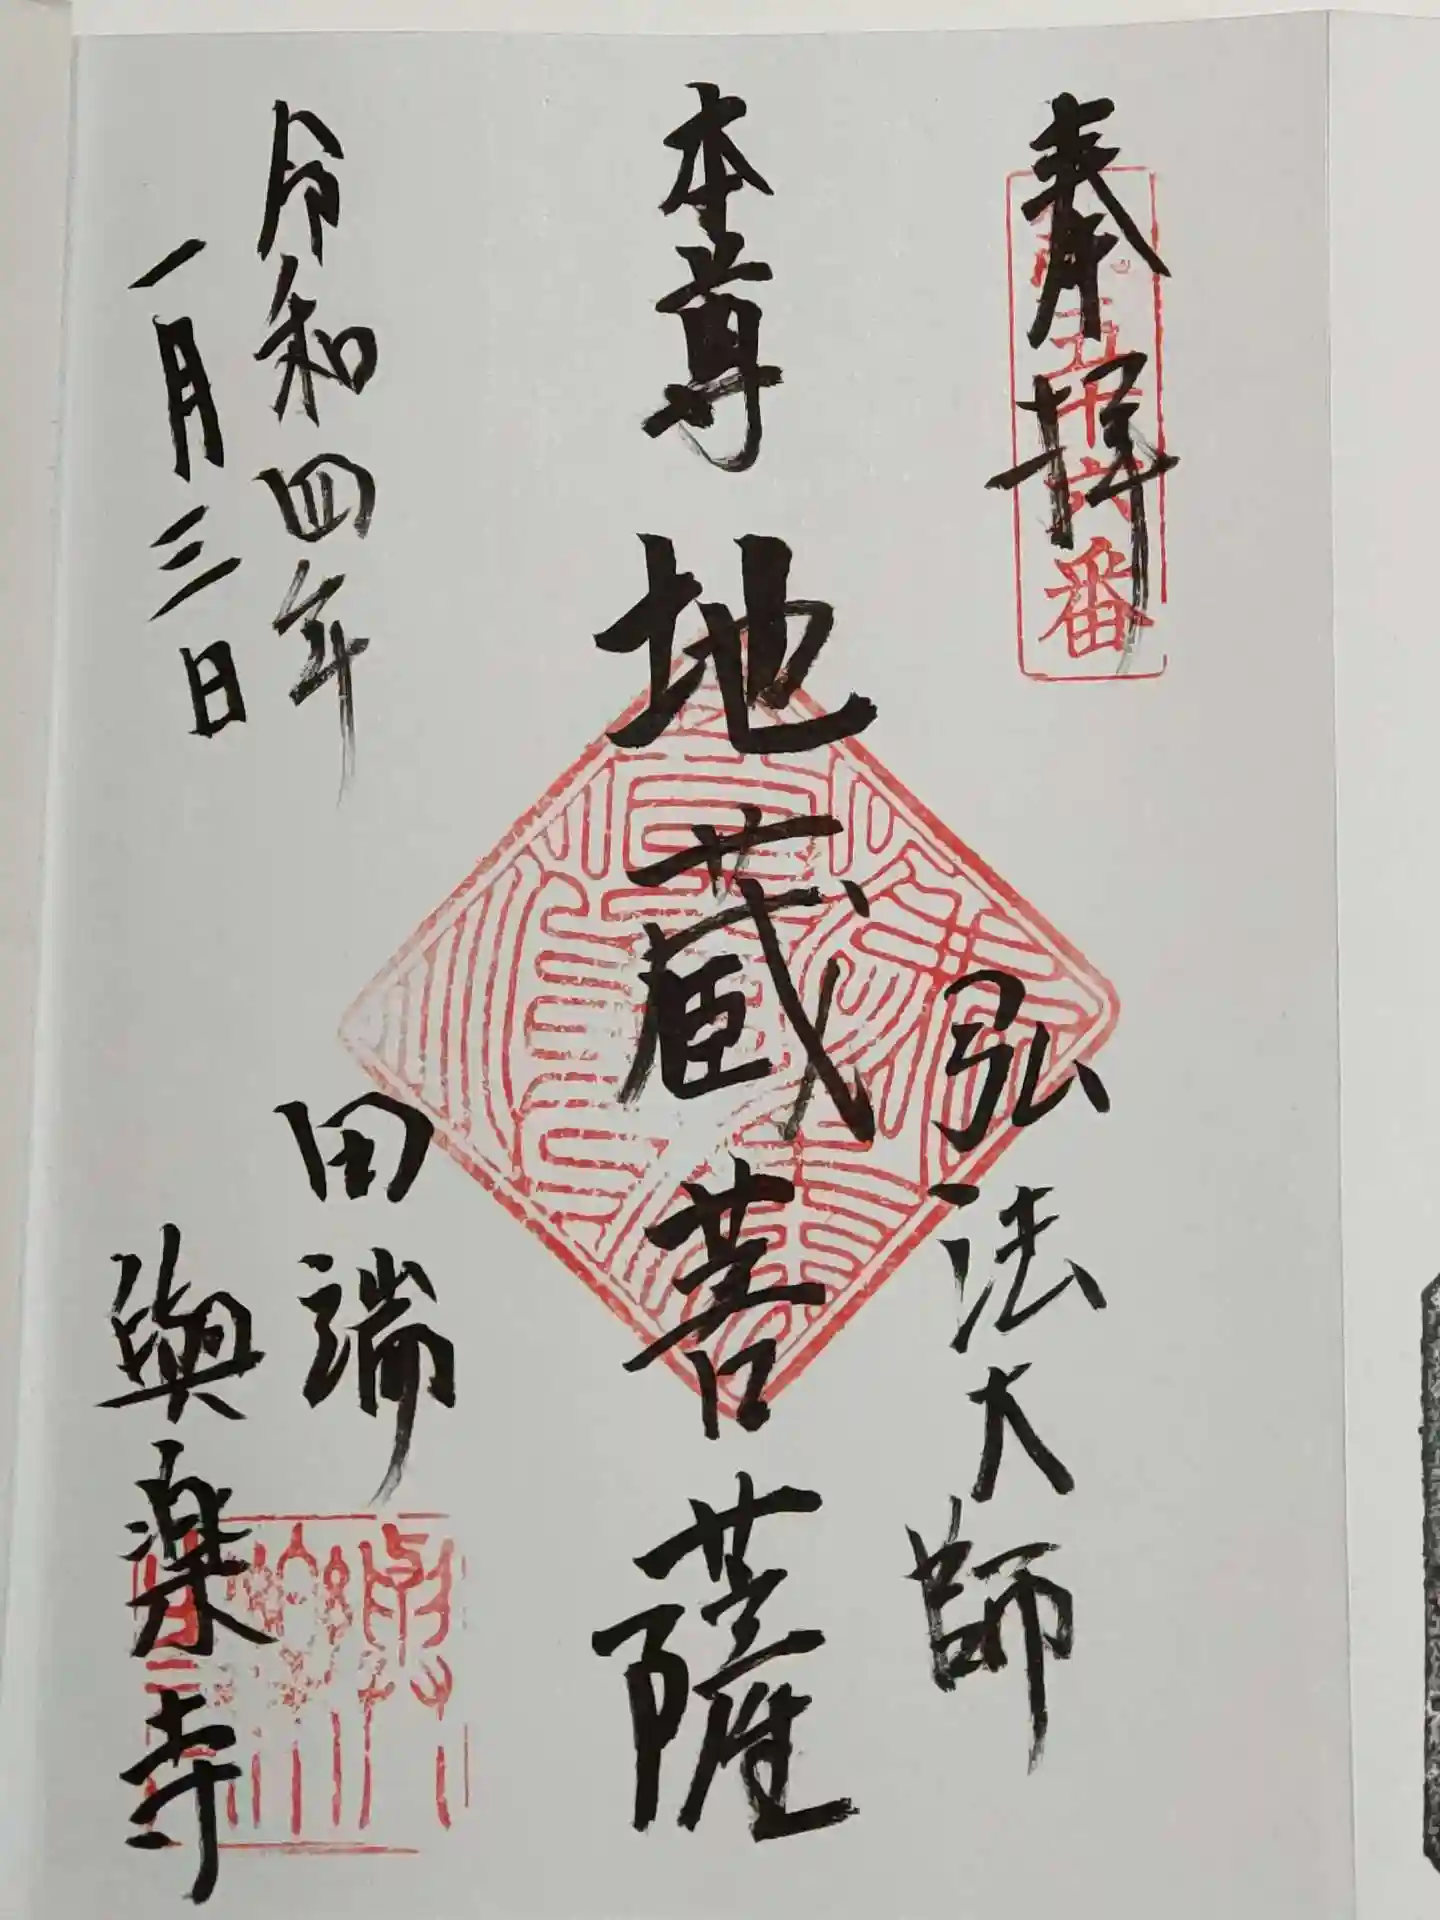 奉拝
五十六番
本尊 地蔵菩薩
弘法大師
令和四年
一月三日
田端
與楽寺